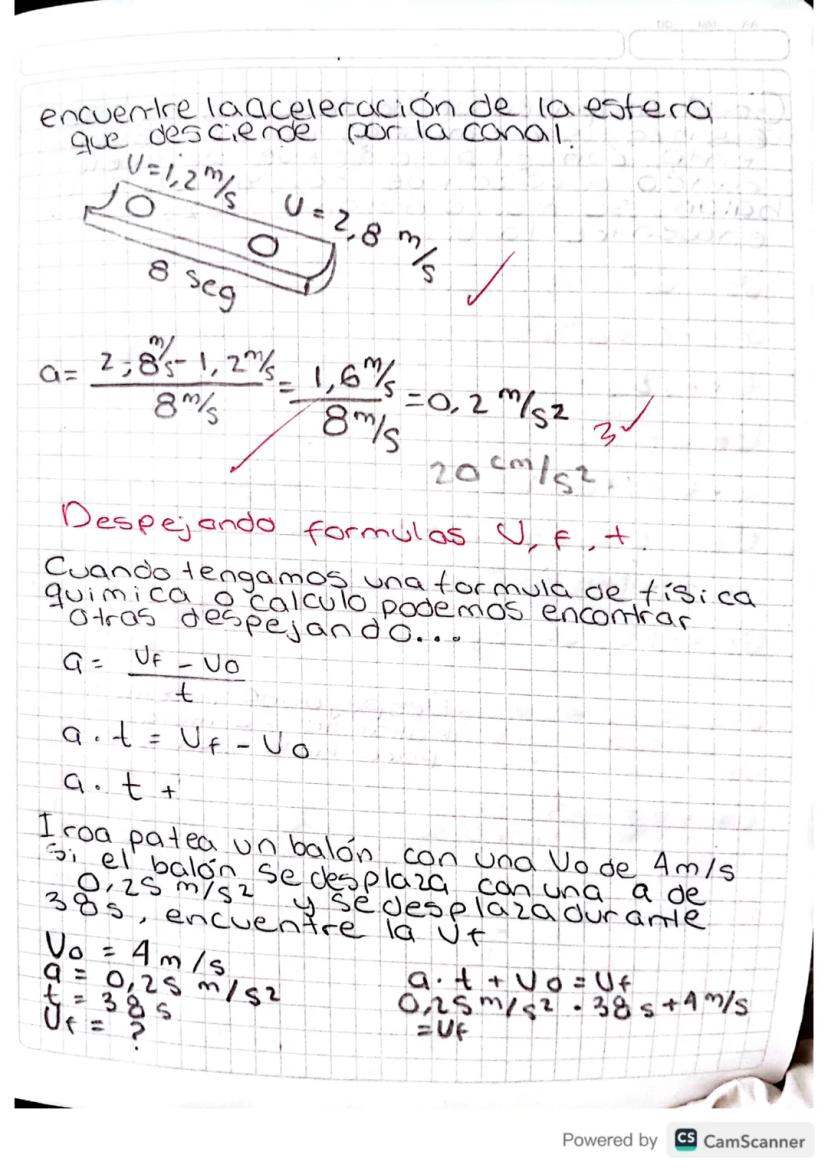 encuentre la aceleración de la esfera
que desciende por la canal.
V=1,2 m/s
V = 2,8 m/s
8 seg
a= 2,8 m/s - 1,2 m/s / 8 m/s = 1,6 m/s / 8 m/s = 0,2 m/s2
3
20 cm/s2.
Despejando formulas V, F, t.
Cuando tengamos una formula de física
quimica o calculo podemos encontrar
otras despejando...
a = Vf - Vo / t
a . t = Vf - Vo
a . t +
Iroa patea un balón con una Vo de 4m/s
si el balón se desplaza con una a de
0,25 m/s2 y se desplaza durante
38s, encuentre la Vf
Vo = 4m/s
a = 0,25 m/s2
t = 38s
Vf = ?
a. t + Vo = Vf
0,25 m/s2 . 38 s + 4 m/s
= Vf
Powered by CS CamScanner